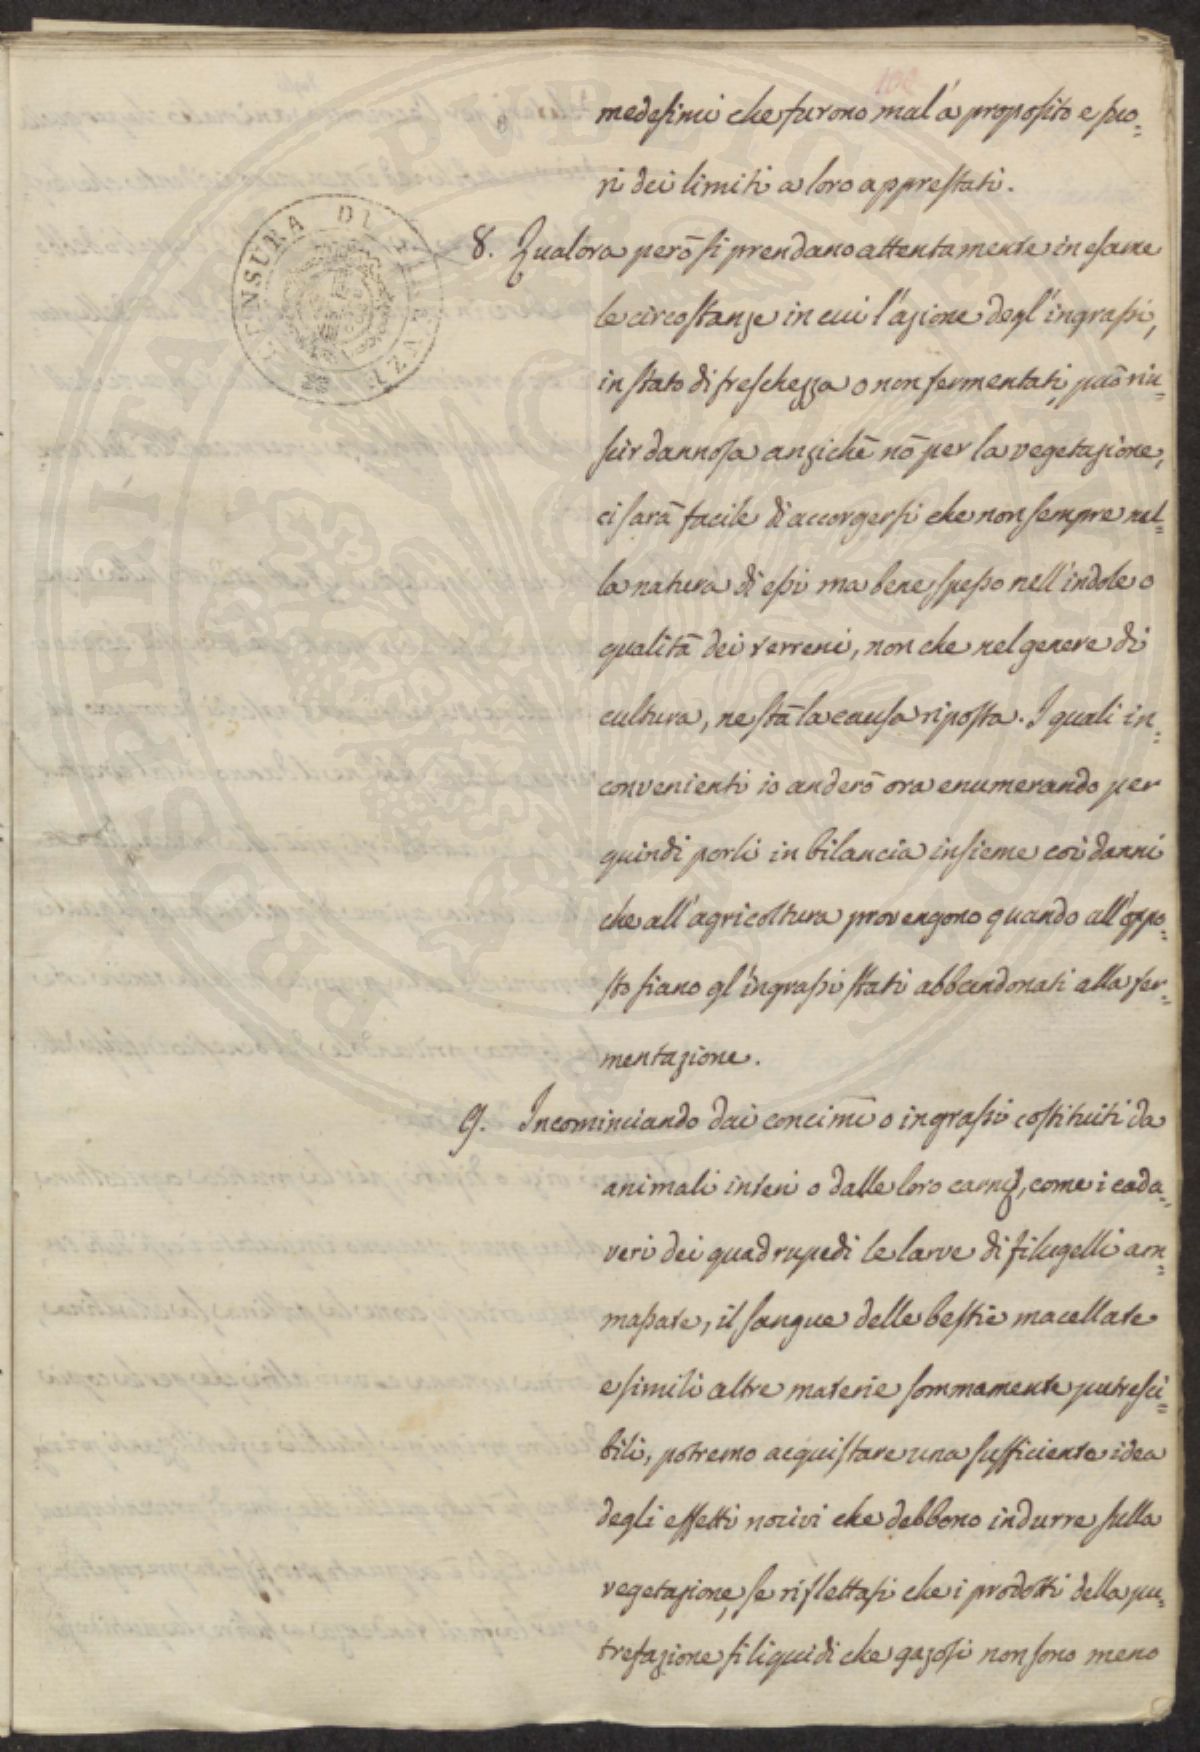 102
medesimi che furono mal'à proposito e fuo=
ri dei limiti a loro apprestati.
8. Qualora però si prendano attentamente in esame
le circostanze in cui l'azione degl'ingrassi,
in stato di freschezza o non fermentati, può riu=
scir dannosa anzichè nò per la vegetazione,
ci sarà facile di accorgersi che non sempre nel=
la natura di essi ma bene spesso nell'indole o
qualità dei terreni, non che nel genere di
cultura, ne stà la causa riposta. I quali in=
convenienti io anderò ora enumerando per
quindi porli in bilancia insieme coi danni
che all'agricoltura provengono quando all'oppo=
sto siano gl'ingrassi stati abbandonati alla fer=
mentazione.
9. Incominciando dai concimi o ingrassi costituiti da
animali interi o dalle loro carni, come i cada=
veri dei quadrupedi le larve di filugelli am=
massate, il sangue delle bestie macellate
e simili altre materie sommamente putresci=
bili, potremo acquistare una sufficiente idea
degli effetti nocivi che debbono indurre sulla
vegetazione, se riflettasi che i prodotti della pu=
trefazione sì liquidi che gazosi non sono meno
PROPRIETÀ PUBBLICA
CENSURA DI FIRENZE